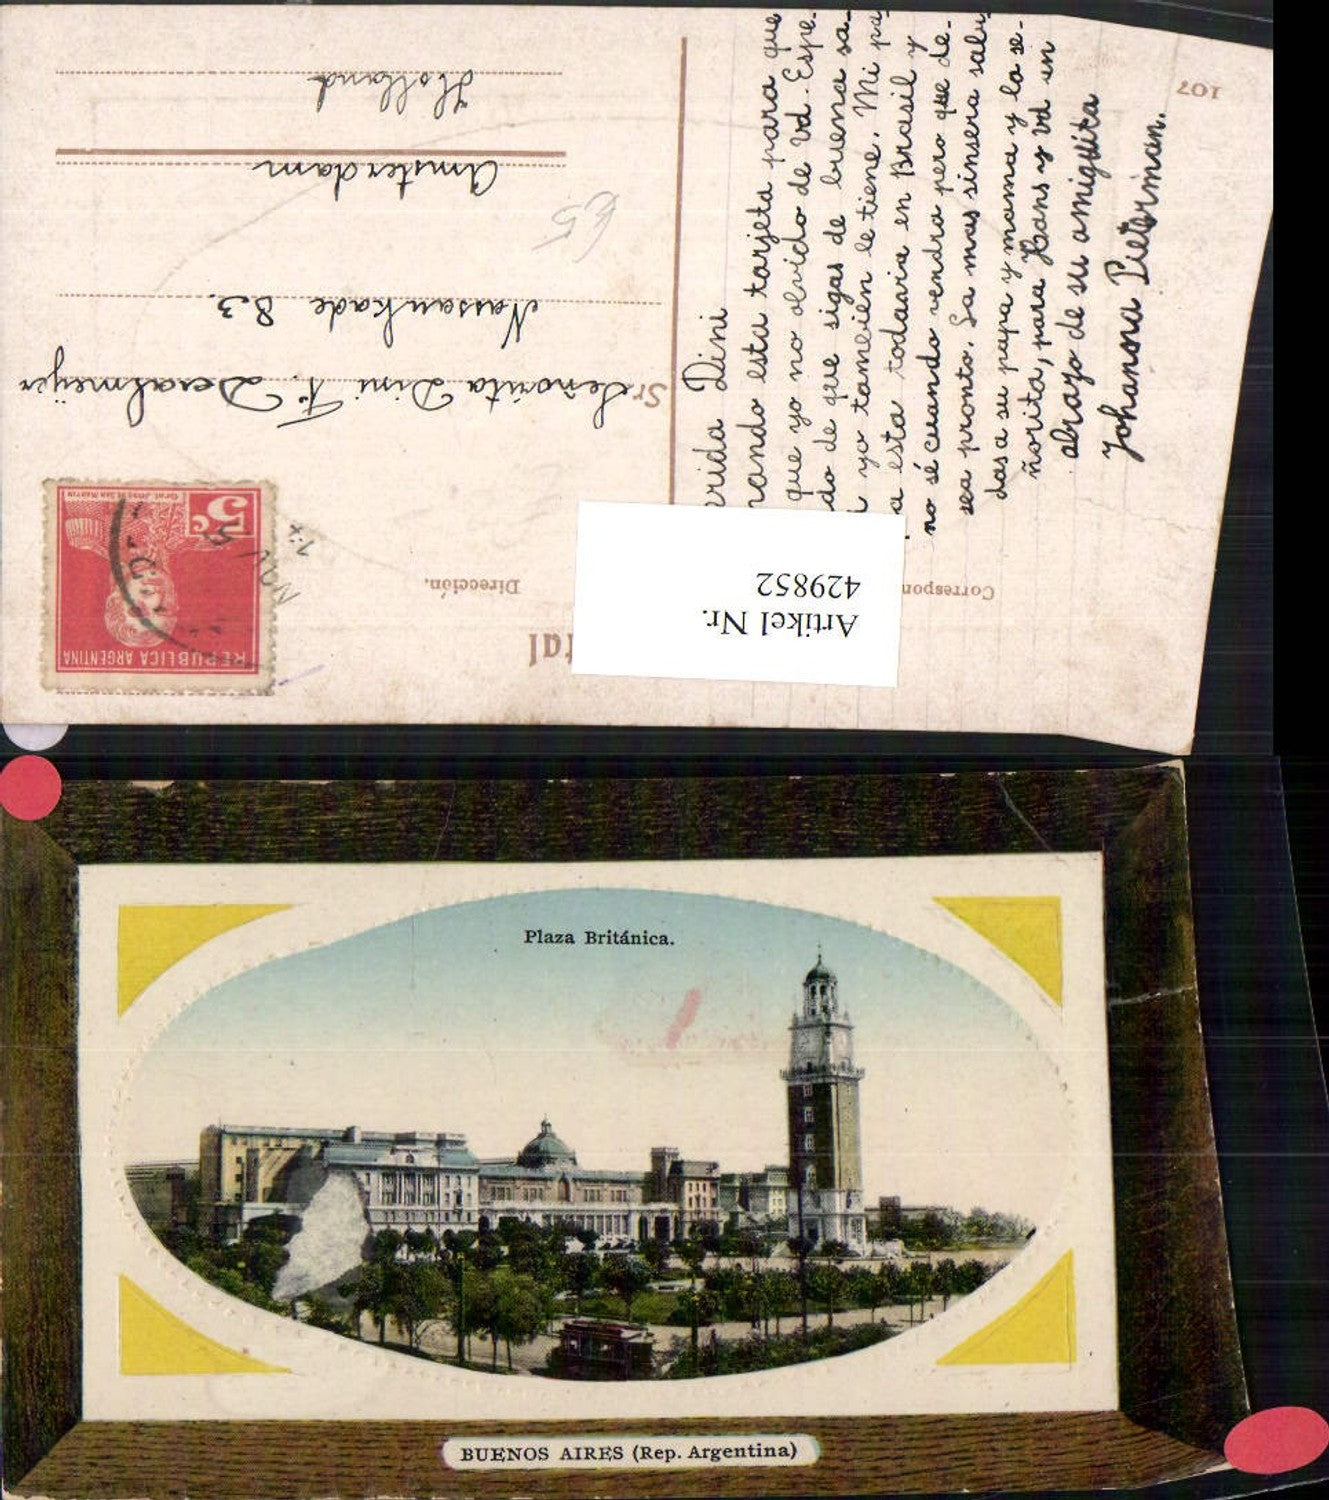 107
Correspon
tal
Dirección.
Artikel Nr.
429852
REPUBLICA ARGENTINA
5c
Gral. José de San Martin
NOV
Sr
Señorita Dini F.
Nassaukade 83.
Amsterdam
Holland
€5
erida Dini
nando esta tarjeta para que
que yo no olvido de Vd. Espe-
do de que sigas de buena sa-
yo tambien le tiene. Mi pa
a esta todavia en Brasil y
no sé cuando vendra pero que de-
sea pronto. La mas sinsera salu
das a su papa y mama y la se-
ñorita, para Hans y Vd un
abrazo de su amiguita
Johanna Pieterman.
Plaza Británica.
BUENOS AIRES (Rep. Argentina)